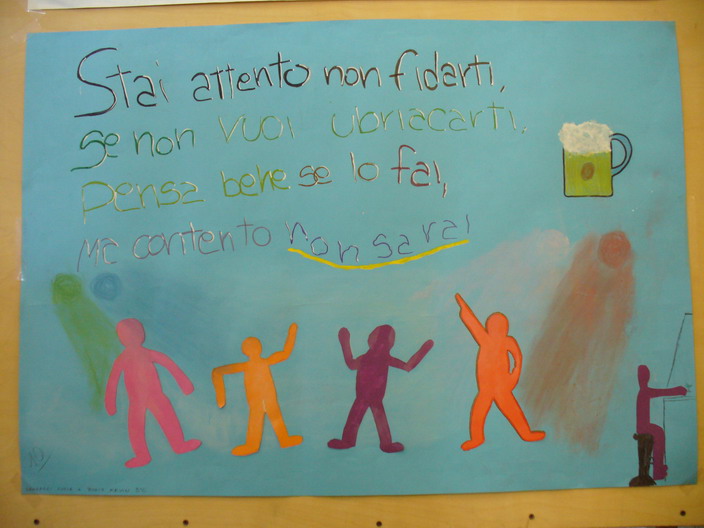 Stai attento non fidarti,
se non vuoi ubriacarti.
Pensa bene se lo fai,
Ma contento non sarai